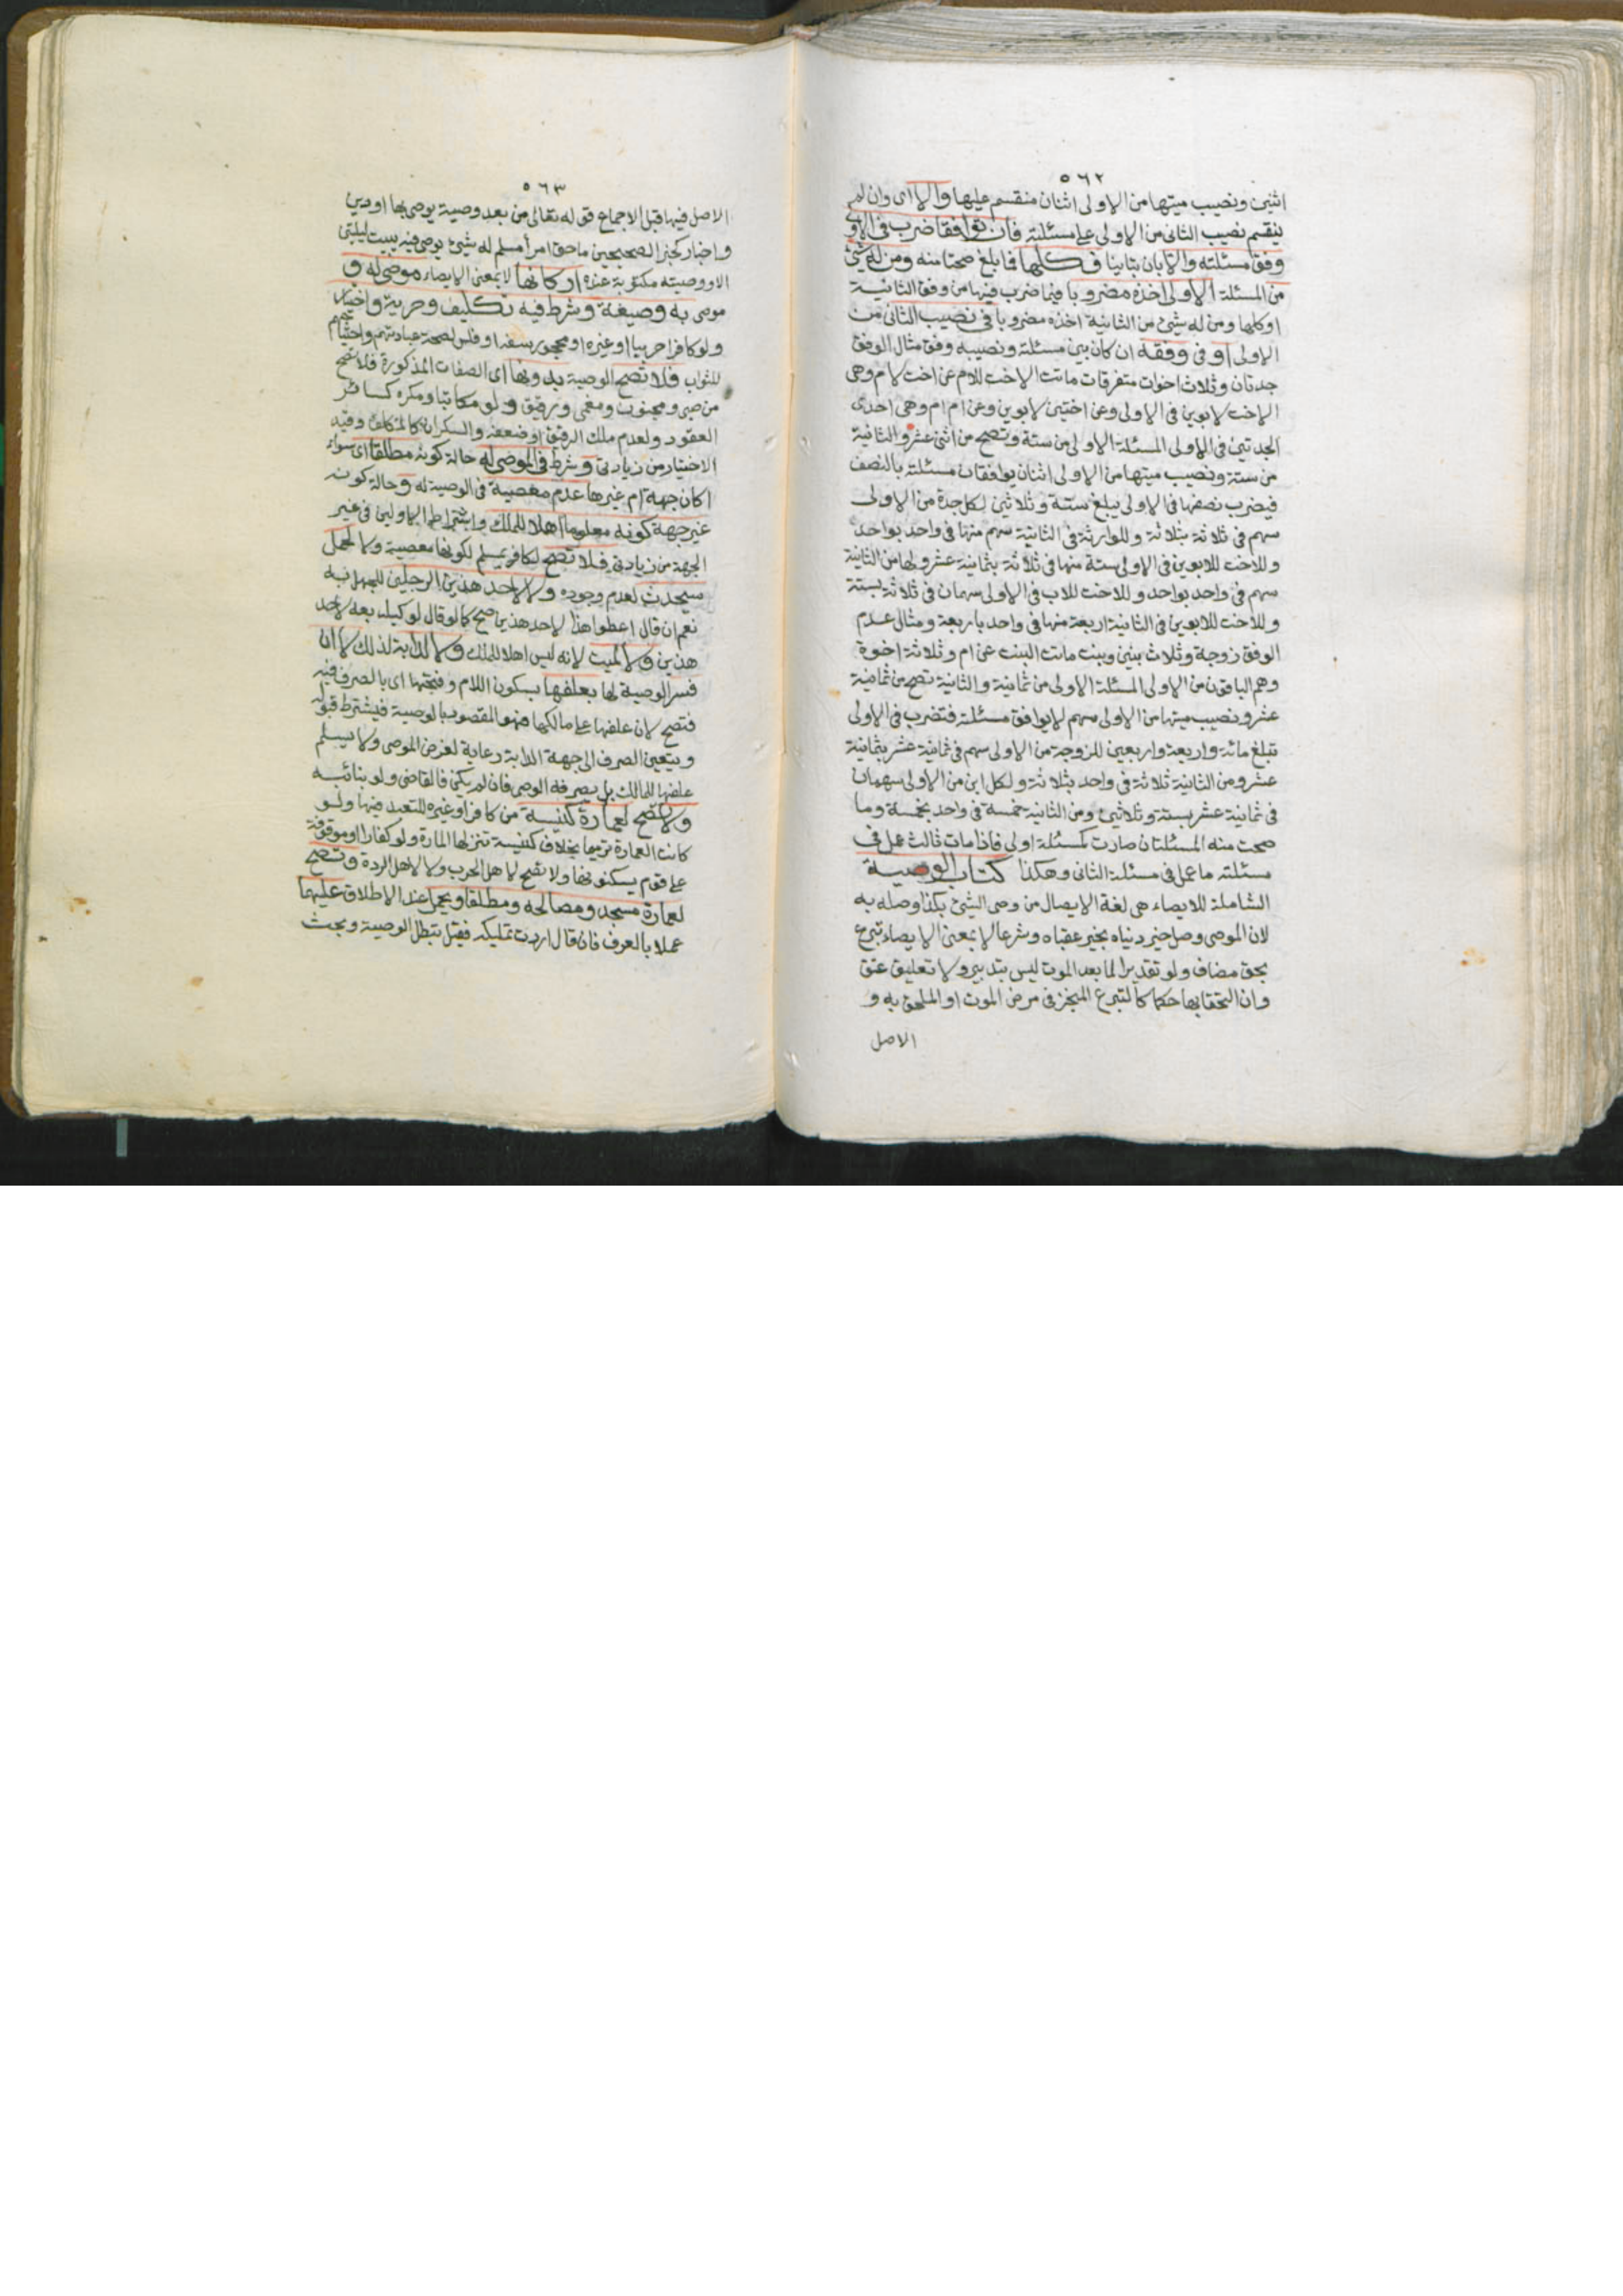 ٥٦٢
اثنين ونصيب ميتها من الاولى اثنان منقسم عليها والا اى وان لم
ينقسم نصيب الثانى من الاولى على مسئلته فان توافقا ضرب فى الاولى
وفق مسئلته والا بان تباينا فكلها فما بلغ صحتا منه ومن له شئ
من المسئلة الاولى اخذه مضروبا فيما ضرب فيها من وفق الثانية
او كلها ومن له شئ من الثانية اخذه مضروبا فى نصيب الثانى من
الاولى او فى وفقه ان كان بين مسئلته ونصيبه وفق مثال الوفق
جدتان وثلاث اخوات متفرقات ماتت الاخت للام عن اخت لام وهى
الاخت لابوين فى الاولى وعن اختين لابوين وعن ام ام وهى احدى
الجدتين فى الاولى المسئلة الاولى من ستة وتصح من اثنى عشر والثانية
من ستة ونصيب ميتها من الاولى اثنان يوافقان مسئلته بالنصف
فيضرب نصفها فى الاولى يبلغ ستة وثلاثين لكل جدة من الاولى
سهم فى ثلاثة بثلاثة وللوارثة فى الثانية سهم منها فى واحد بواحد
وللاخت للابوين فى الاولى ستة منها فى ثلاثة بثمانية عشر ولها من الثانية
سهم فى واحد بواحد وللاخت للاب فى الاولى سهمان فى ثلاثة بستة
وللاخت للابوين فى الثانية اربعة منها فى واحد باربعة ومثال عدم
الوفق زوجة وثلاث بنين وبنت ماتت البنت عن ام وثلاثة اخوة
وهم الباقون من الاولى المسئلة الاولى من ثمانية والثانية تصح من ثمانية
عشر ونصيب ميتها من الاولى سهم لا يوافق مسئلته فتضرب فى الاولى
تبلغ مائة واربعة واربعين للزوجة من الاولى سهم فى ثمانية عشر بثمانية
عشر ومن الثانية ثلاثة فى واحد بثلاثة ولكل ابن من الاولى سهمان
فى ثمانية عشر بستة وثلاثين ومن الثانية خمسة فى واحد بخمسة وما
صحت منه المسئلتان صارت كمسئلة اولى فاذا مات ثالث عمل فى
مسئلته ما عمل فى مسئلة الثانى وهكذا كتاب الوصية
الشاملة للايصاء هى لغة الايصال من وصى الشئ بكذا وصله به
لان الموصى وصل خير دنياه بخير عقباه وشرعا لا بمعنى الايصاء تبرع
بحق مضاف ولو تقديرا لما بعد الموت ليس بتدبير ولا تعليق عتق
وان التحقا بها حكما كالتبرع المنجز فى مرض الموت او الملحق به و
الاصل
٥٦٣
الاصل فيها قبل الاجماع قوله تعالى من بعد وصية يوصى بها او دين
واخبار كخبر الصحيحين ما حق امرأ مسلم له شئ يوصى فيه يبيت ليلتين
الا ووصيته مكتوبة عنده اركانها لا بمعنى الايصاء موصى له و
موصى به وصيغة وشرط فيه تكليف وحرية واختيار
ولو كافرا حربيا او غيره او محجور بسفه او فلس لصحة عبادتهم واحتياجهم
للثواب فلا تصح الوصية بدونها اى الصفات المذكورة فلا تصح
من صبى ومجنون ومغمى ورقيق ولو مكاتبا ومكره كسائر
العقود ولعدم ملك الرقيق او ضعفه والسكران كالمكلف وقيد
الاختيار من زيادتى وشرط فى الموصى له حالة كونه مطلقا اى سواء
اكان جهة ام غيرها عدم معصية فى الوصية له وحالة كونه
غير جهة كونه معلوما اهلا للملك واشتراط الاولين فى غير
الجهة من زيادتى فلا تصح لكافر بمسلم لكونها معصية ولا لحمل
سيحدث لعدم وجوده ولا لاحد هذين الرجلين للجهل به
نعم ان قال اعطوا هذا لاحد هذين صح كما لو قال لوكيله بعه لاحد
هذين ولا لميت لانه ليس اهلا للملك ولا لدابة لذلك لا ان
فسر الوصية لها بعلفها بسكون اللام وفتحها اى بالصرف فيه
فتصح لان علفها على مالكها فهو المقصود بالوصية فيشترط قبوله
ويتعين الصرف الى جهة الدابة رعاية لغرض الموصى ولا يسلم
علفها للمالك بل يصرفه الوصى فان لم يكن فالقاضى ولو بنائبه
ولا تصح لعمارة كنيسة من كافر او غيره للتعبد فيها ولو
كانت العمارة ترميما بخلاف كنيسة تنزلها المارة ولو كفارا او موقوفة
على قوم يسكنونها ولا تصح لاهل الحرب ولا لاهل الردة وتصح
لعمارة مسجد ومصالحه ومطلقا ويحمل عند الاطلاق عليهما
عملا بالعرف فان قال اردت تمليكه فقيل تبطل الوصية وبحث